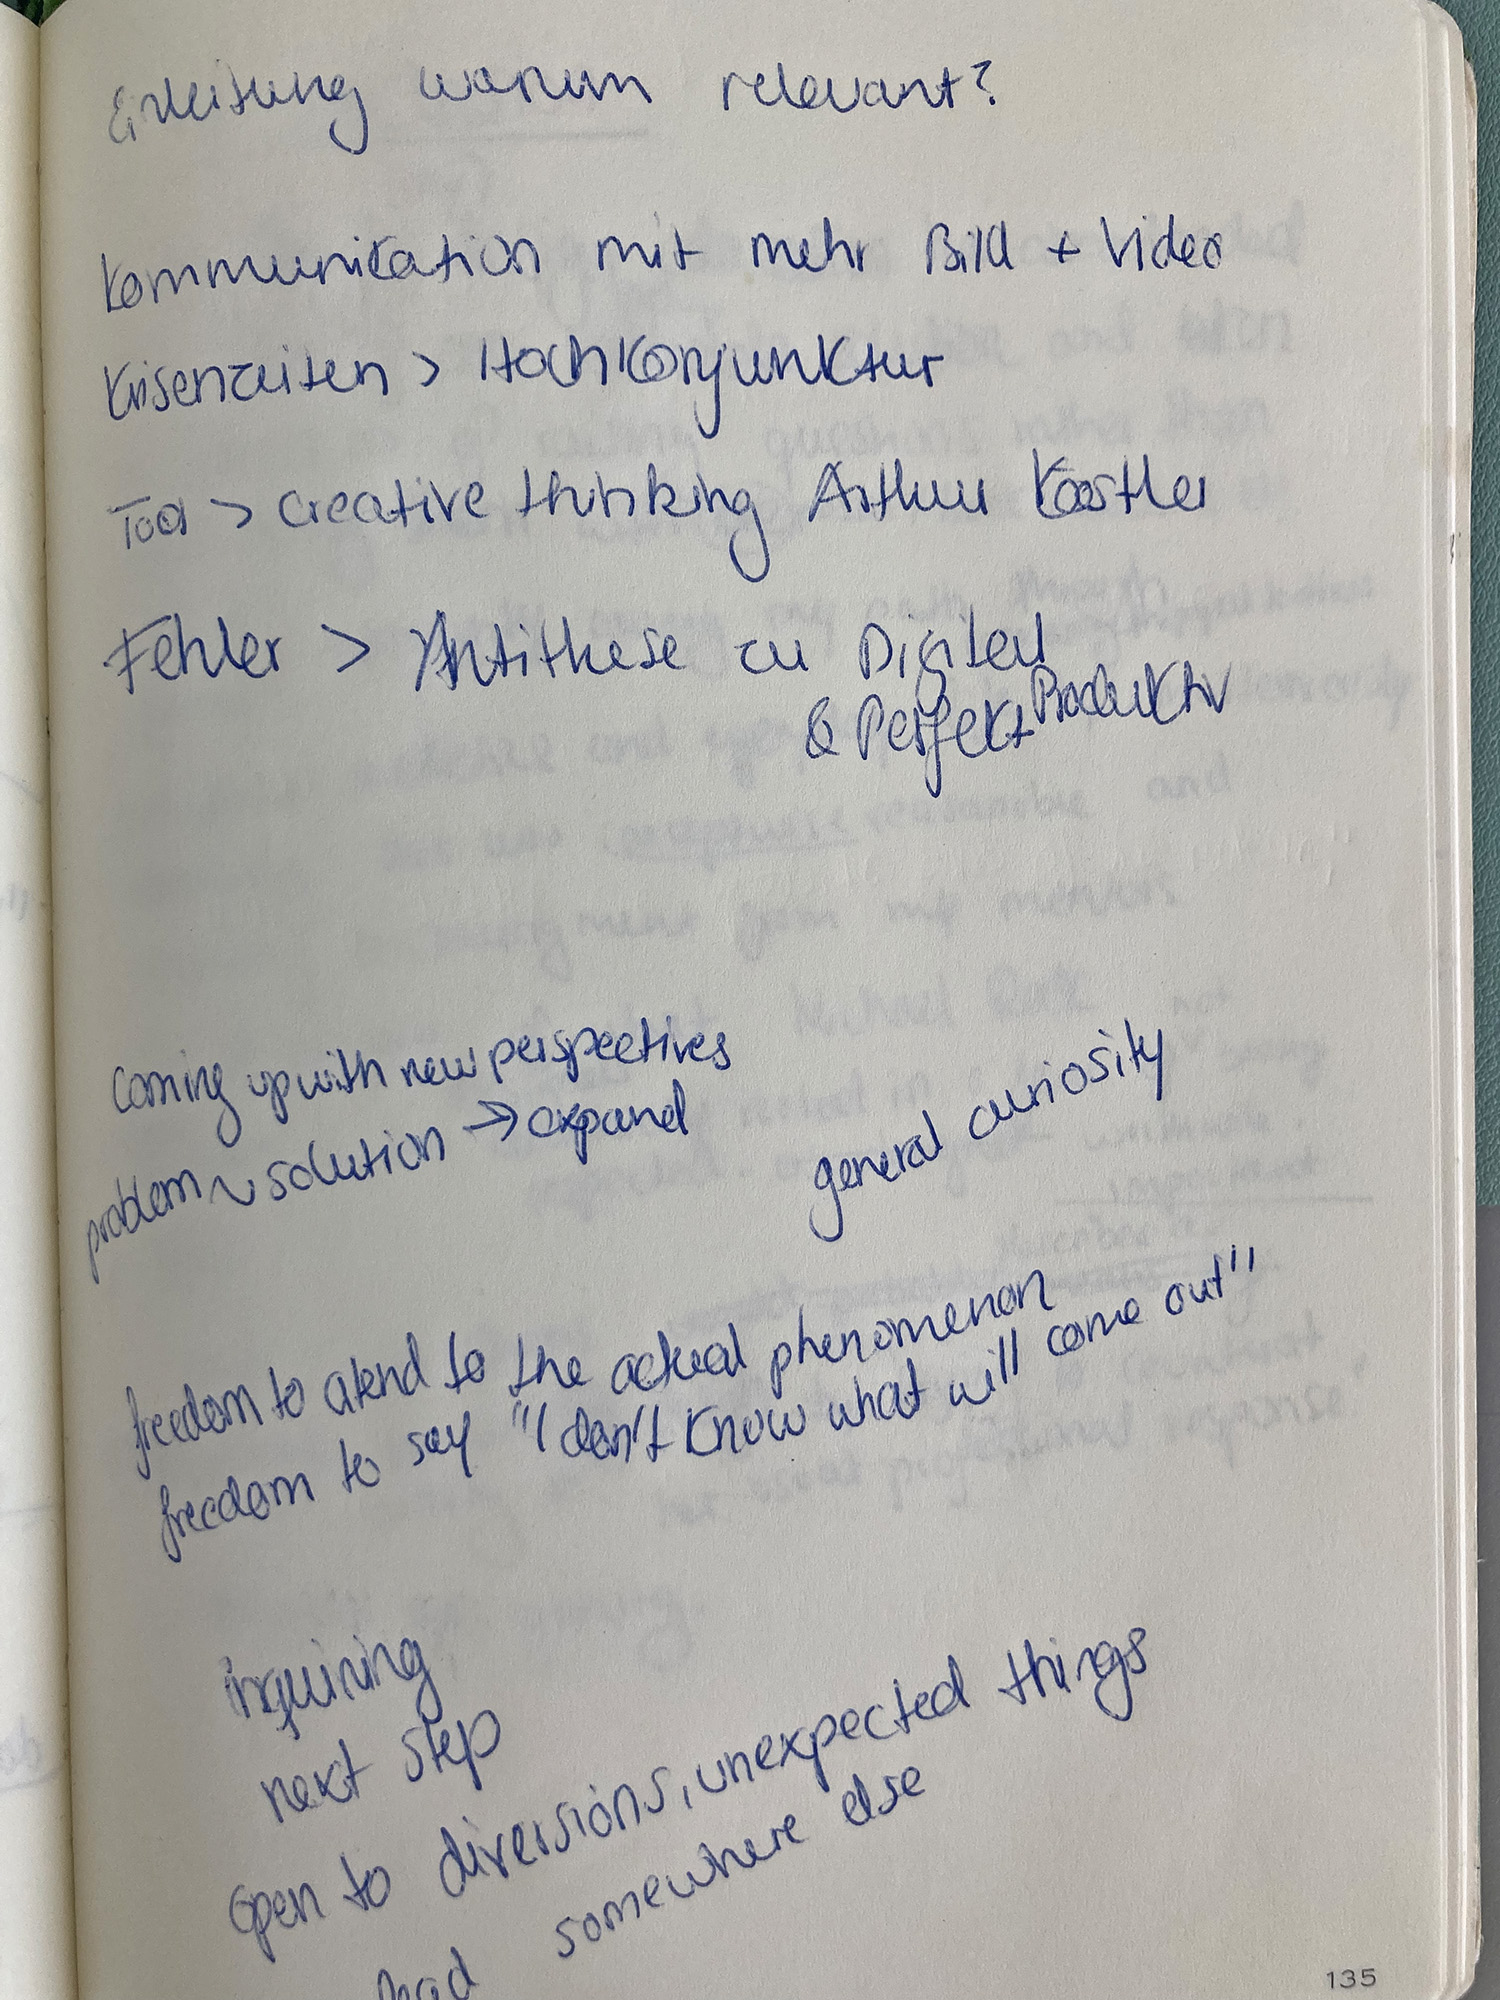 Einleitung warum relevant?
Kommunikation mit mehr Bild + Video
Krisenzeiten > Hochkonjunktur
Tool > creative thinking Arthur Köstler
Fehler > Antithese zu Digital
& Perfekt Produktiv
Coming up with new perspectives
problem ~ solution → expand
general curiosity
freedom to atend to the actual phenomenon
freedom to say "I don't know what will come out"
inquiring
next step
open to diversions, unexpected things
somewhere else
135